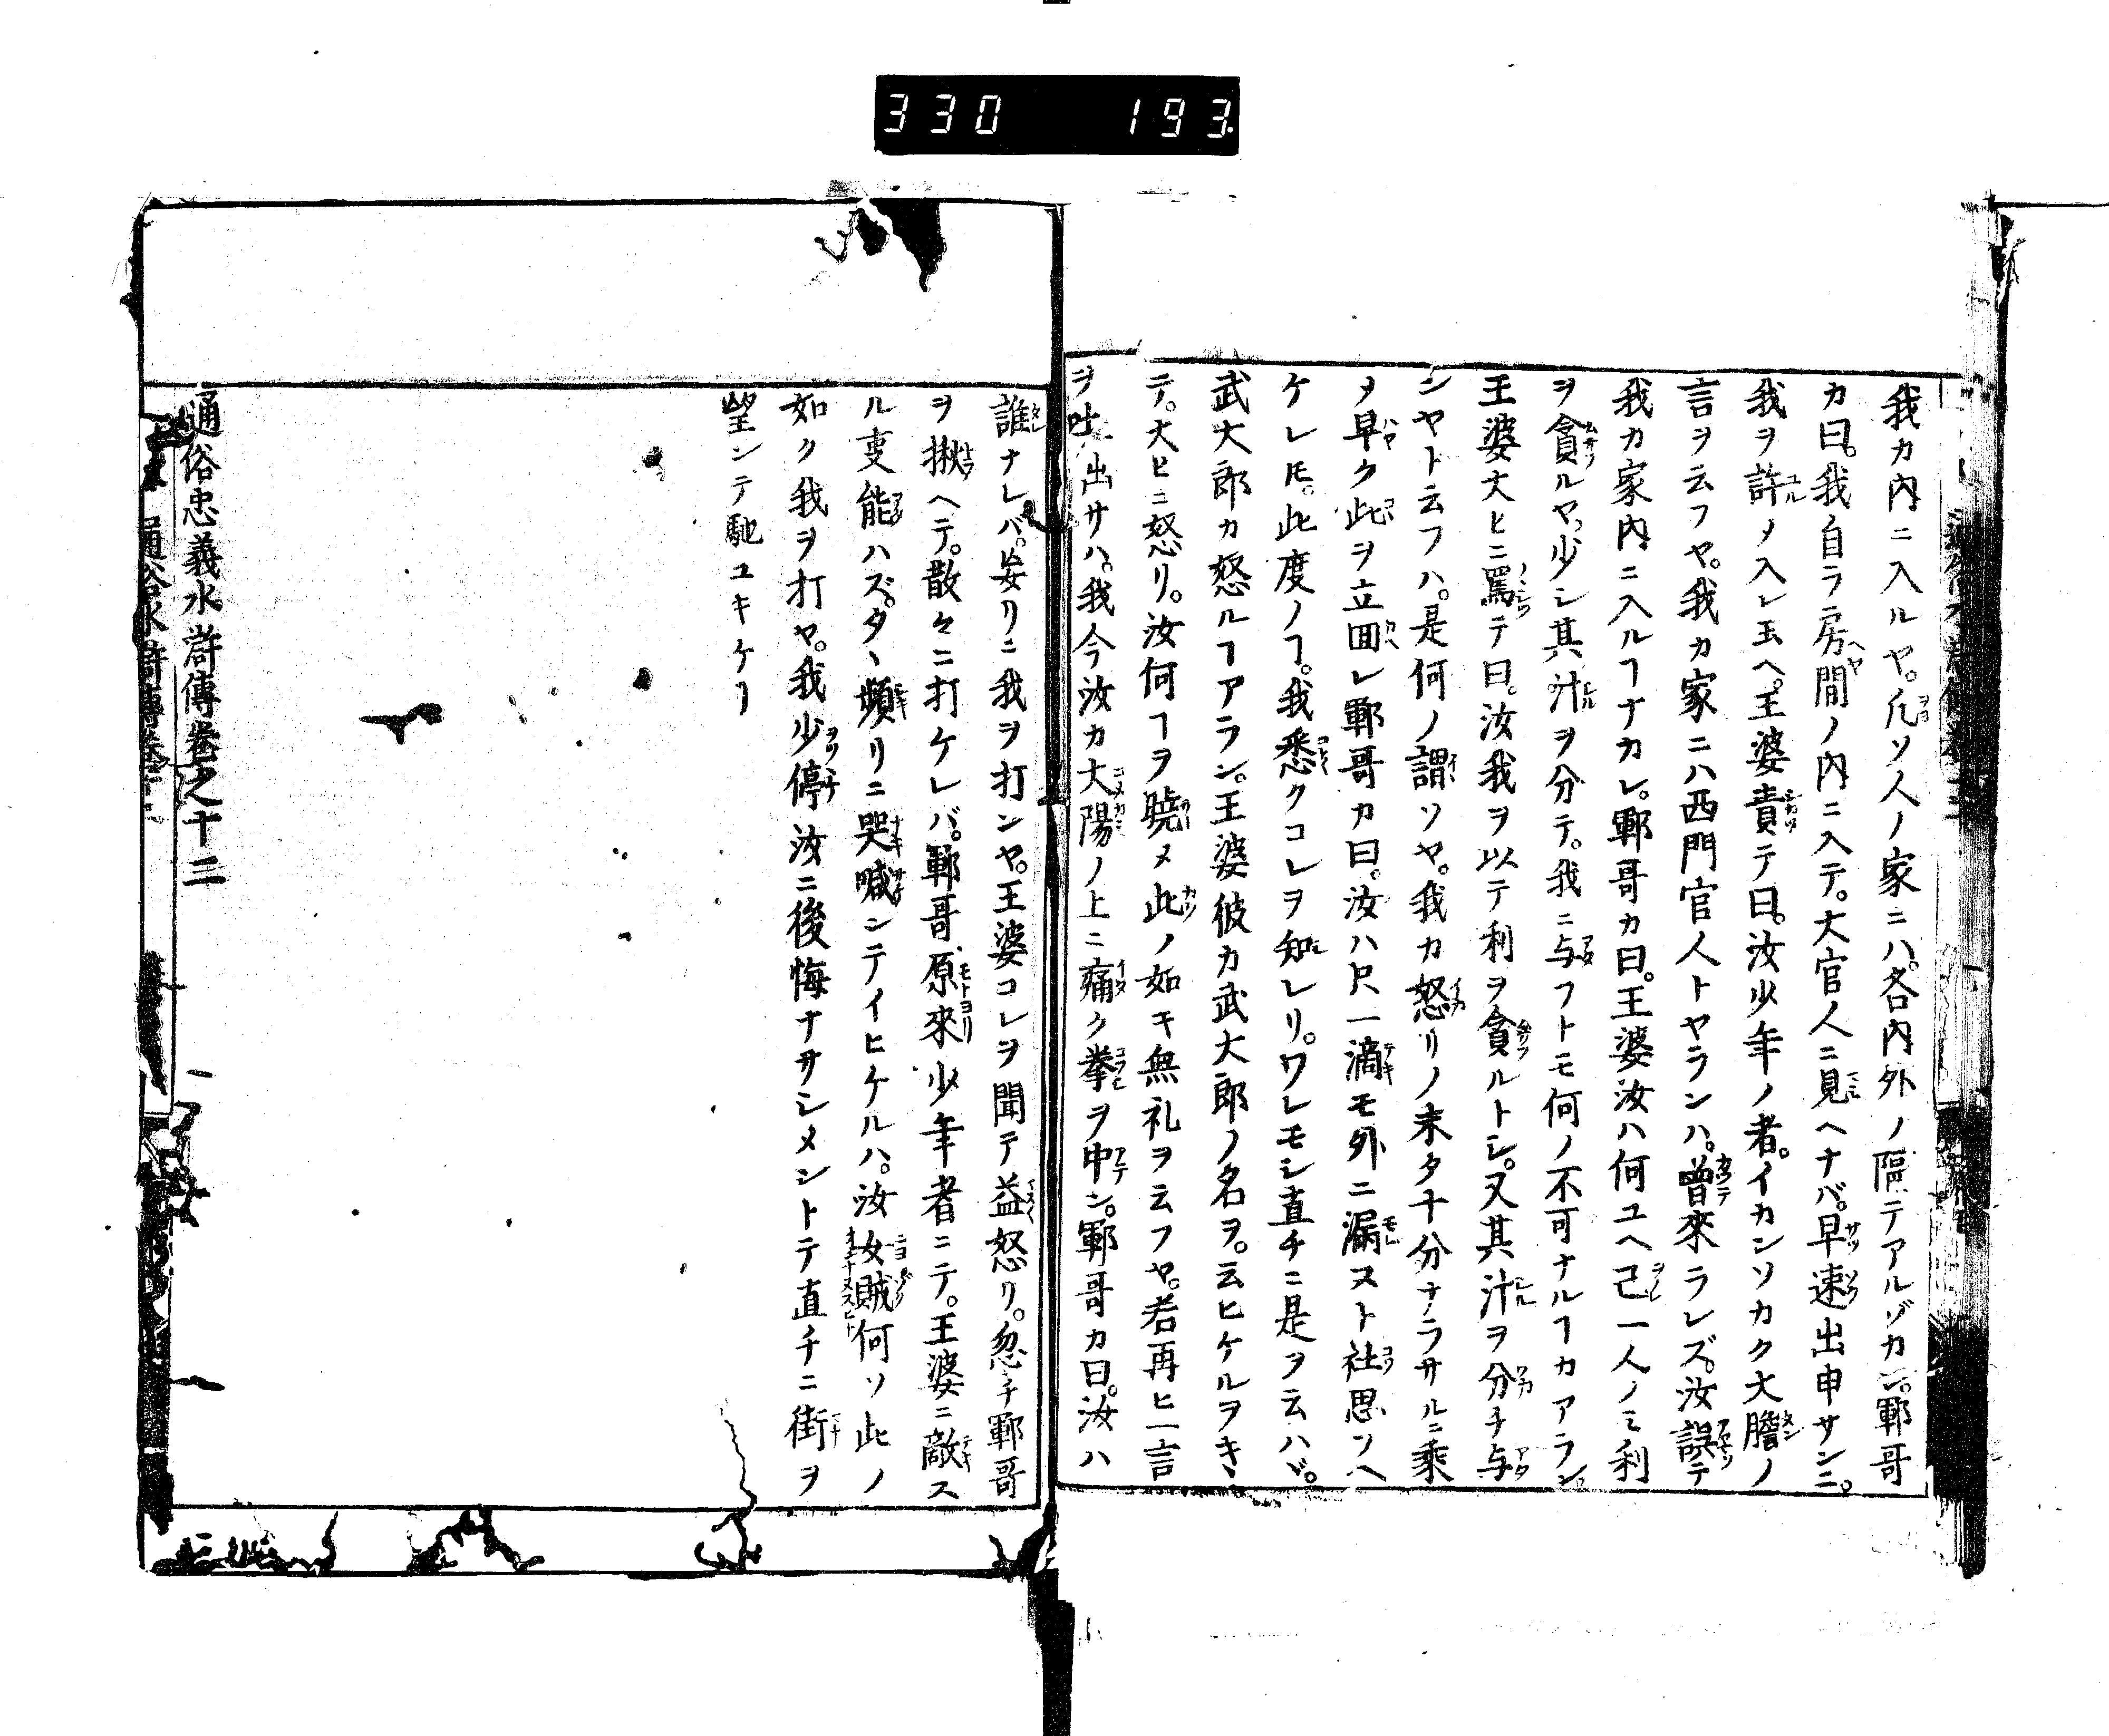 330 193
我カ内ニ入ルヤ。凡ソ人ノ家ニハ。各内外ノ隔テアルゾカシ。鄆哥
カ曰。我自ラ房間ノ内ニ入テ。大官人ニ見ヘナバ。早速出申サンニ。
我ヲ許ノ入レ玉ヘ。王婆責テ曰。汝少年ノ者。イカンソカク大膽ノ
言ヲ云フヤ。我カ家ニハ西門官人トヤランハ。曽來ラレズ。汝誤テ
我カ家内ニ入ルヿナカレ。鄆哥カ曰。王婆汝ハ何ユヘ己一人ノミ利
ヲ貪ルヤ。少シ其汁ヲ分テ。我ニ与フトモ何ノ不可ナルヿカアラン。
王婆大ヒニ罵テ曰。汝我ヲ以テ利ヲ貪ルトシ。又其汁ヲ分チ与
ンヤト云フハ。是何ノ謂ソヤ。我カ怒リノ未タ十分ナラサルニ乘
ヌ早ク此ヲ立囬レ鄆哥カ曰。汝ハ只一滴モ外ニ漏スト社思ソヘ
ケレ𪜈。此度ノヿ。我悉クコレヲ知レリ。ワレモシ直チニ是ヲ云ハヾ。
武大郎カ怒ルヿアラン。王婆彼カ武大郎ノ名ヲ。云ヒケルヲキヽ
テ。大ヒニ怒リ。汝何ヿヲ曉メ此ノ如キ無礼ヲ云フヤ。若再ヒ一言
ヲ吐出サハ。我今汝カ大陽ノ上ニ痛ク拳ヲ中ン。鄆哥カ曰。汝ハ
誰ナレバ。妄リニ我ヲ打ンヤ。王婆コレヲ聞テ益怒リ。忽チ鄆哥
ヲ揪ヘテ。散々ニ打ケレバ。鄆哥原來少年者ニテ。王婆ニ敵ス
ル叓能ハズ。タヽ頻リニ哭喊ンテイヒケルハ。汝女賊何ソ此ノ
如ク我ヲ打ヤ。我少停汝ニ後悔ナサシメントテ直チニ街ヲ
望ンテ馳ユキケリ
通俗忠義水滸傳卷之十三